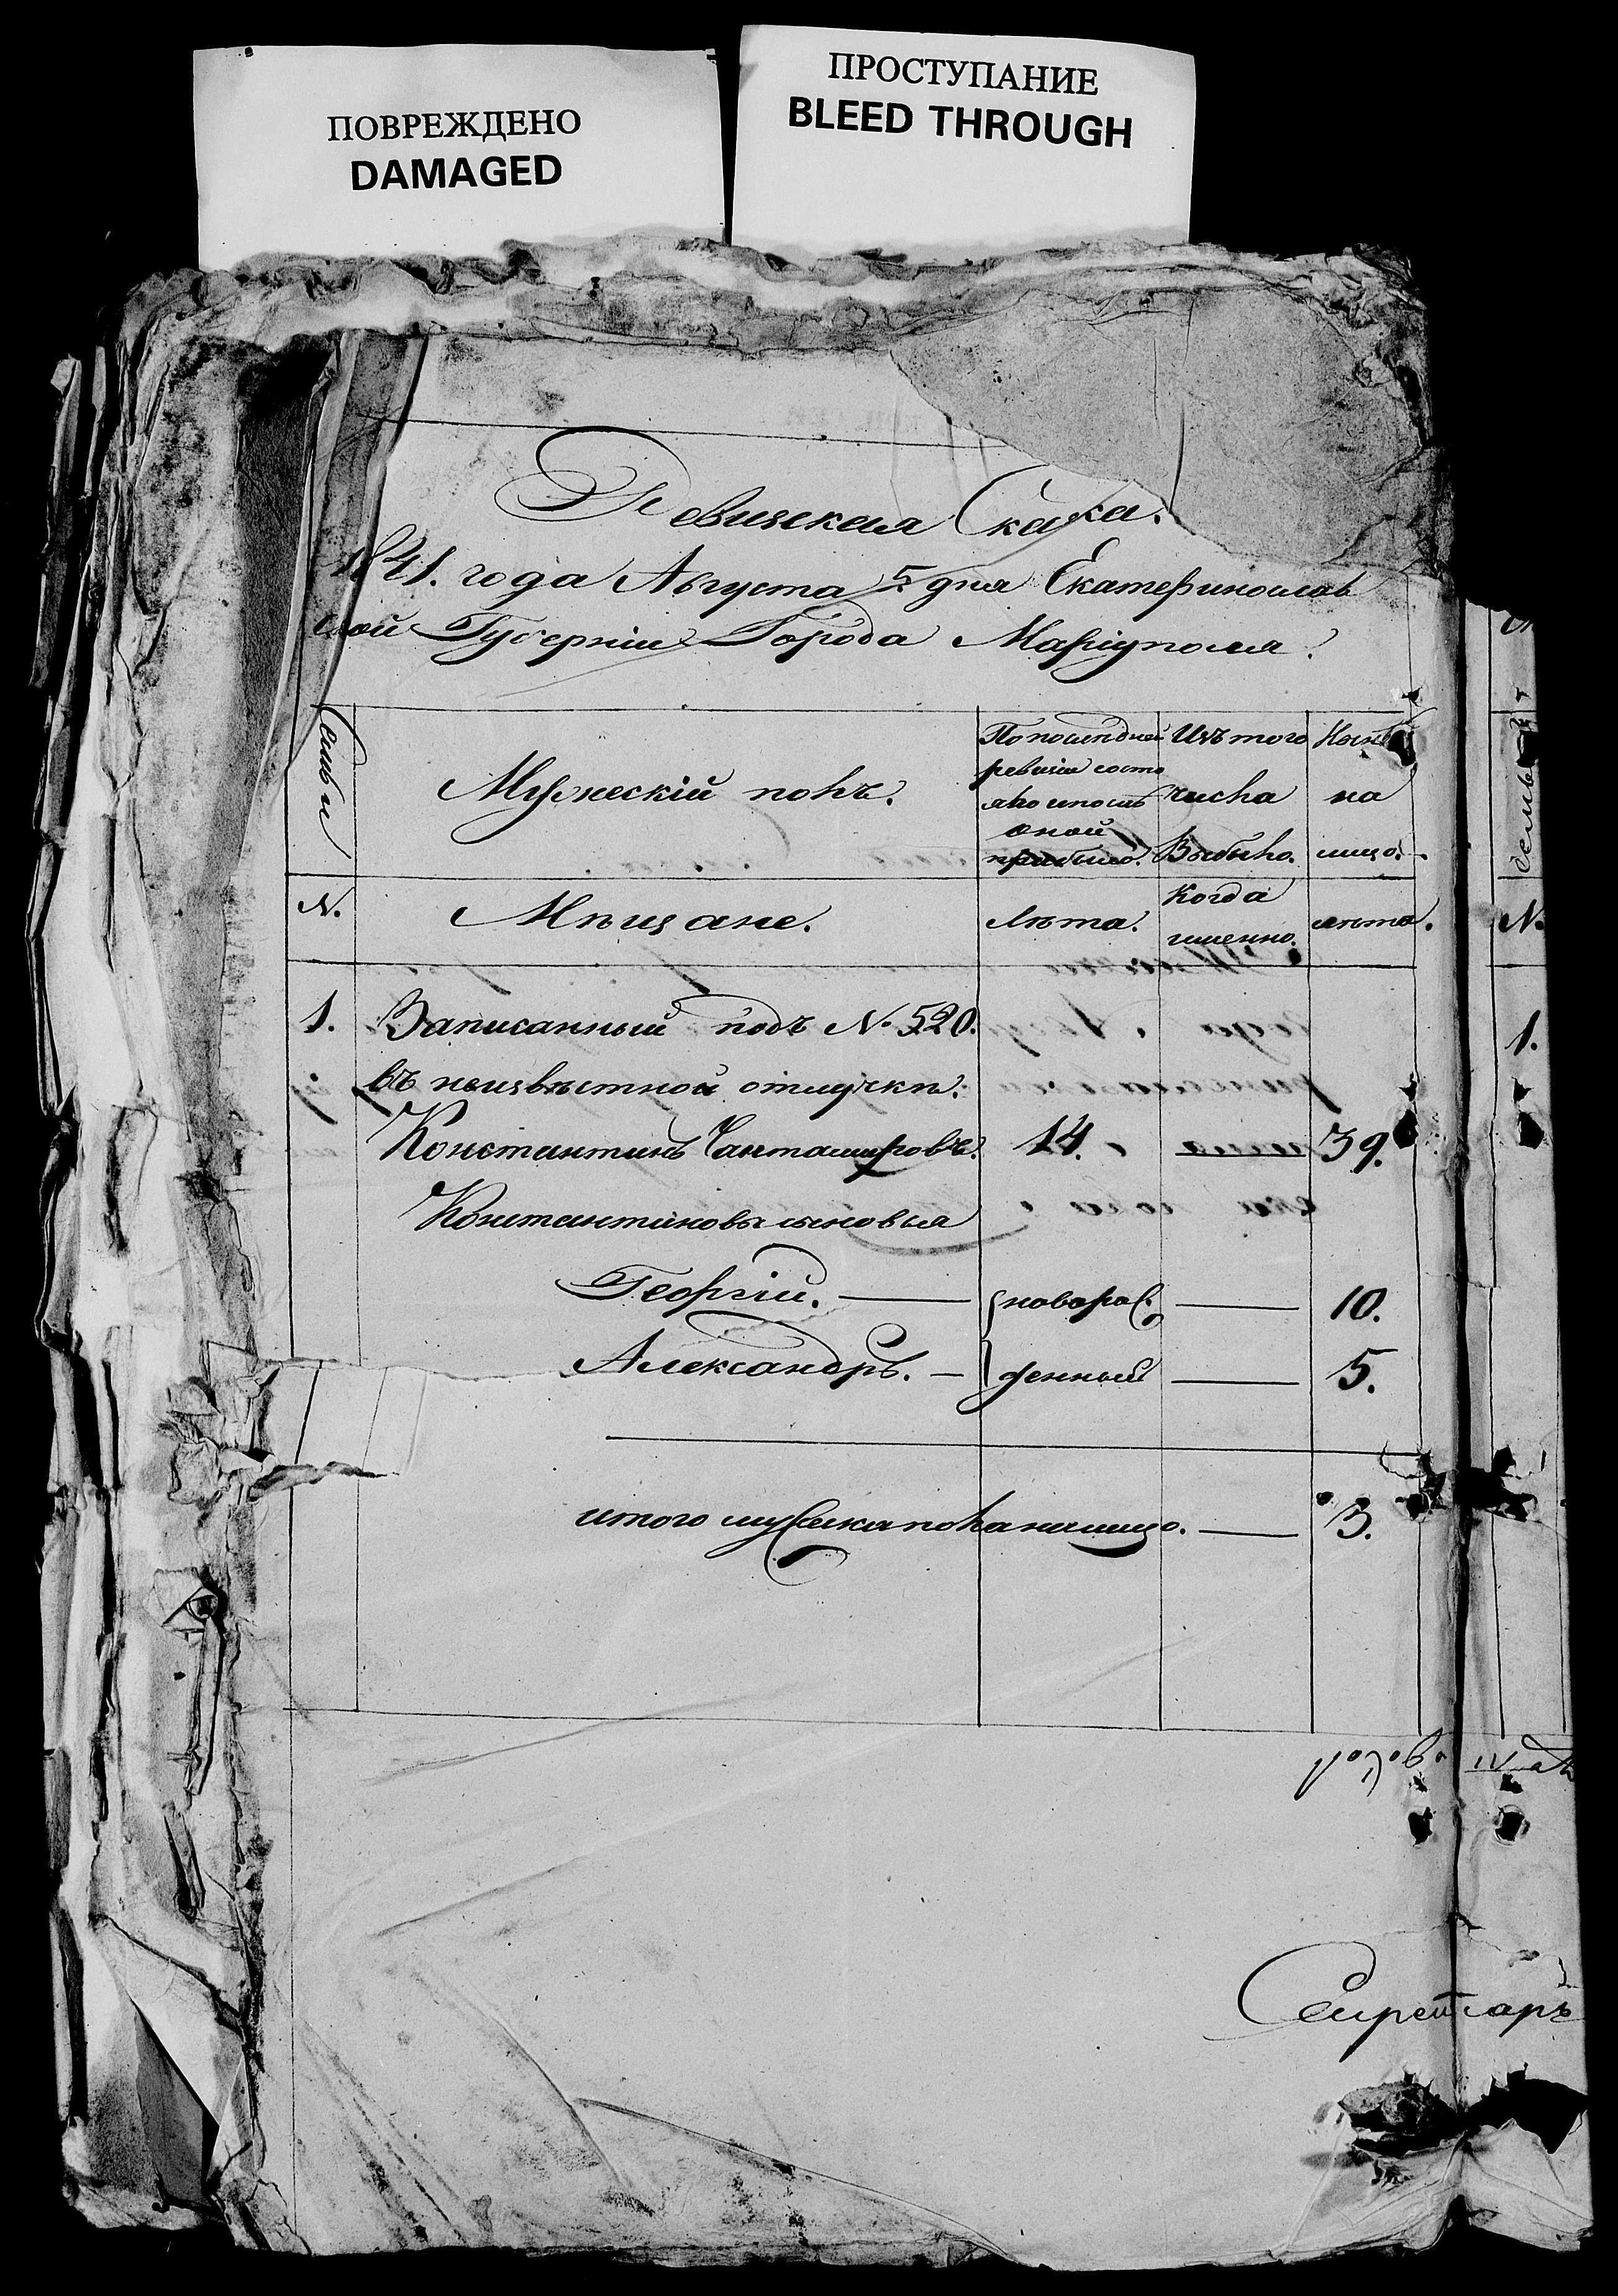 ПОВРЕЖДЕНО
DAMAGED
ПРОСТУПАНИЕ
BLEED THROUGH
Ревизская Сказка.
1841. года Августа 5. дня Екатеринослав
ской Губернiи Города Марiуполя.
Семьи
Мужескiй полъ.
По последней ревизiи состо яло и посль оной прибыло.
Изъ того числа Выбыло.
Нынь на лицо.
N.
Мѣщане.
Лѣта.
Когда именно.
лѣта.
1. Записанный подъ N. 520.
въ неизвѣстной отлучкѣ.
Константинъ Чентамировъ. 14. 39.
Константиновы сыновья
Георгiй. — новорож — 10.
Александръ. — денный — 5.
итого мужеска пола налицо. — 3.
Секретарь
Семьи
N.
1.